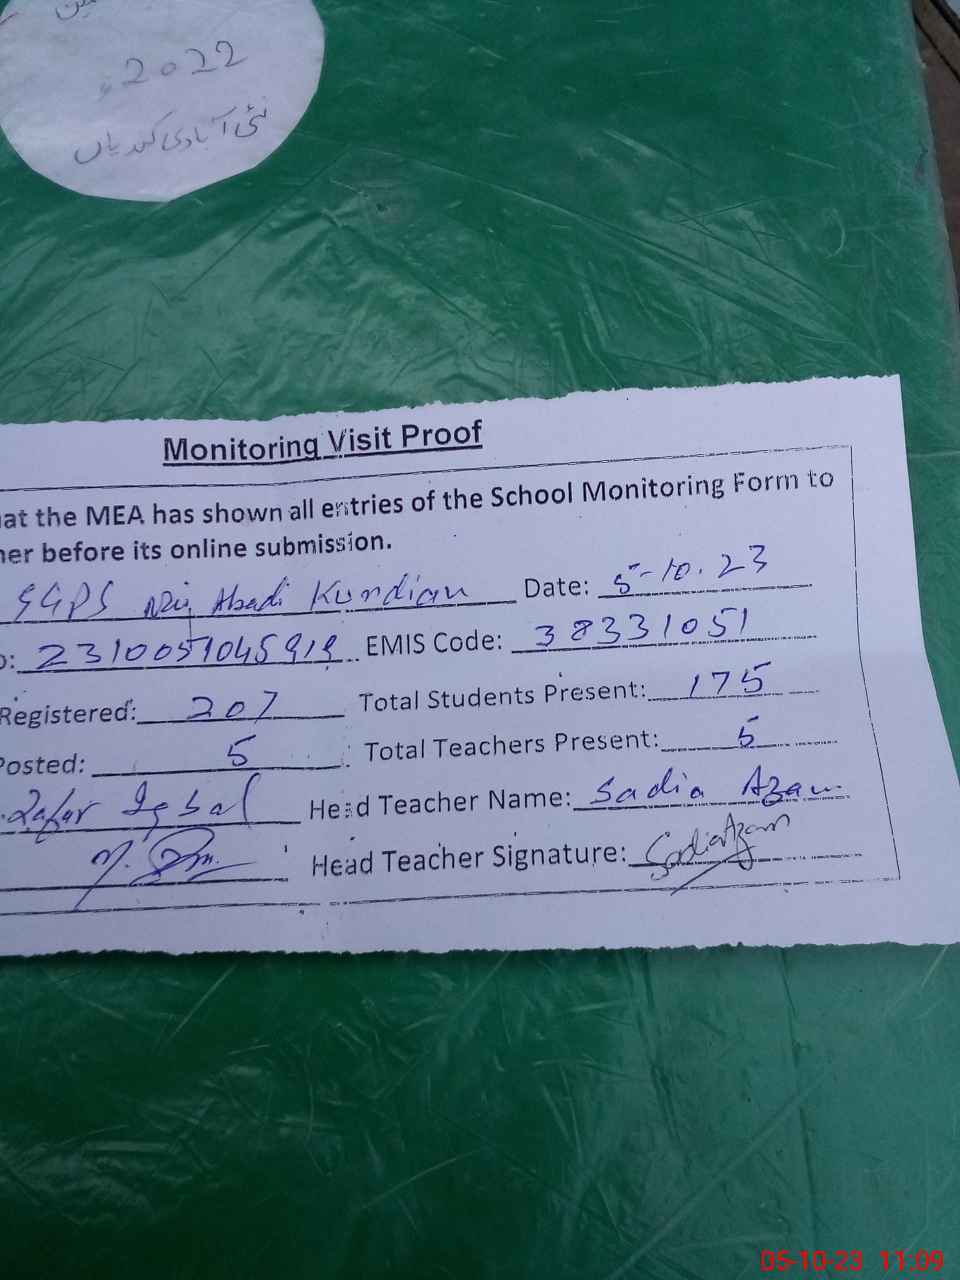 2022ء
نئی آبادی کندیاں
Monitoring Visit Proof
at the MEA has shown all entries of the School Monitoring Form to
her before its online submission.
SGPS Nai Abadi Kundian Date: 5-10.23
: 2310051045919 EMIS Code: 38331051
Registered: 207 Total Students Present: 175
Posted: 5 Total Teachers Present: 5
Zafar Iqbal Head Teacher Name: Sadia Azam
Head Teacher Signature: Sadia Azam
05-10-23 11:09